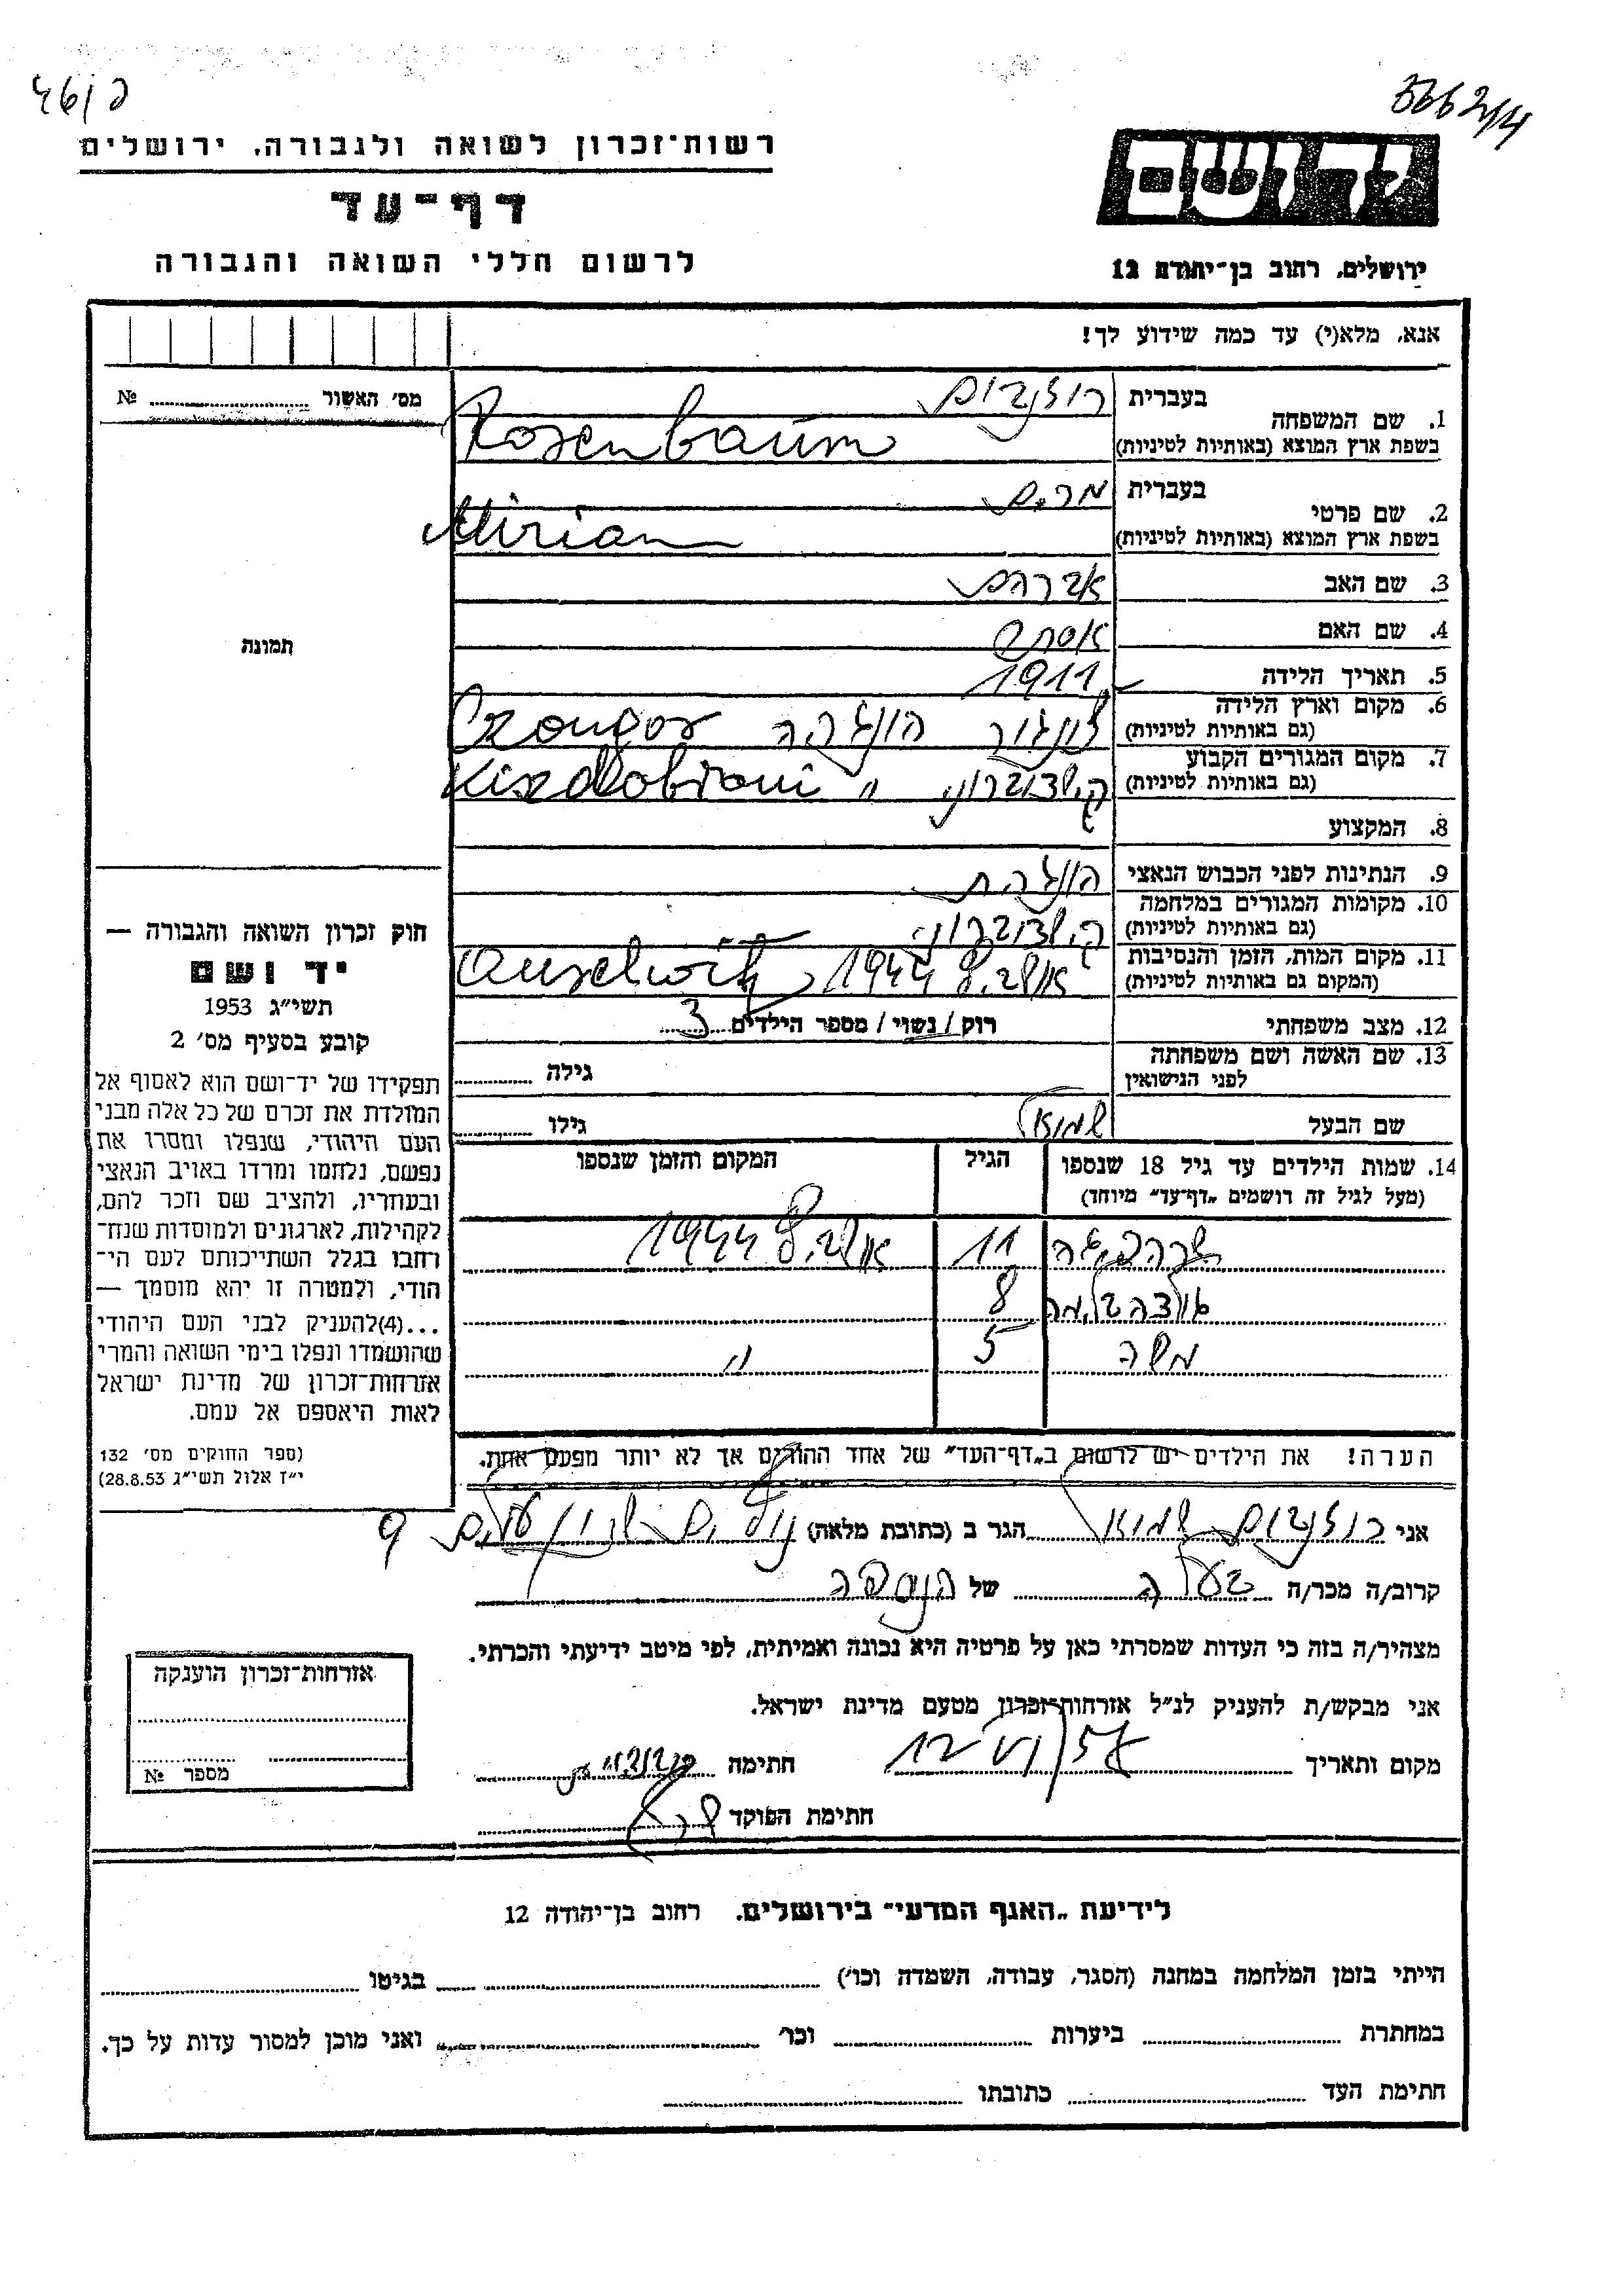 רשות־זכרון לשואה ולגבורה, ירושלים
דף־עד
לרשום חללי השואה והגבורה
ידושם
ירושלים, רחוב בן־יהודה 12
אנא, מלא(י) עד כמה שידוע לך!
מס׳ האשור № 
1. שם המשפחה בעברית רוזנבוים
בשפת ארץ המוצא (באותיות לטיניות) Rosenbaum
2. שם פרטי בעברית מרים
בשפת ארץ המוצא (באותיות לטיניות) Miriam
3. שם האב אברהם
4. שם האם אסתר
5. תאריך הלידה 1911
6. מקום וארץ הלידה
(גם באותיות לטיניות) הונגריה
7. מקום המגורים הקבוע
(גם באותיות לטיניות) "
8. המקצוע
9. הנתינות לפני הכבוש הנאצי הונגרית
10. מקומות המגורים במלחמה
(גם באותיות לטיניות)
11. מקום המות, הזמן והנסיבות
(המקום גם באותיות לטיניות) אושביץ 1944
12. מצב משפחתי רווק / נשוי / מספר הילדים 3
13. שם האשה ושם משפחתה
לפני הנישואין גילה
שם הבעל שמואל גילו
14. שמות הילדים עד גיל 18 שנספו הגיל המקום והזמן שנספו
(מעל לגיל זה רושמים „דף־עד״ מיוחד)
11 אושביץ 1944
8
משה 5 "
הערה! את הילדים יש לרשום ב„דף־העד״ של אחד ההורים אך לא יותר מפעם אחת.
תמונה
חוק זכרון השואה והגבורה —
יד ושם
תשי״ג 1953
קובע בסעיף מס׳ 2
תפקידו של יד־ושם הוא לאסוף אל
המולדת את זכרם של כל אלה מבני
העם היהודי, שנפלו ומסרו את
נפשם, נלחמו ומרדו באויב הנאצי
ובעוזריו, ולהציב שם וזכר להם,
לקהילות, לארגונים ולמוסדות שנח־
רחבו בגלל השתייכותם לעם הי־
הודי, ולמטרה זו יהא מוסמך —
...(4)להעניק לבני העם היהודי
שהושמדו ונפלו בימי השואה והמרי
אזרחות־זכרון של מדינת ישראל
לאות היאספם אל עמם.
(ספר החוקים מס׳ 132
י״ז אלול תשי״ג 28.8.53)
אני רוזנבוים שמואל הגר ב (כתובת מלאה)
קרוב/ה מכר/ה בעלה של הנספה
מצהיר/ה בזה כי העדות שמסרתי כאן על פרטיה היא נכונה ואמיתית, לפי מיטב ידיעתי והכרתי.
אני מבקש/ת להעניק לנ״ל אזרחות־זכרון מטעם מדינת ישראל.
מקום ותאריך חתימה
חתימת הפוקד
אזרחות־זכרון הוענקה
מספר №
לידיעת „האגף המדעי״ בירושלים, רחוב בן־יהודה 12
הייתי בזמן המלחמה במחנה (הסגר, עבודה, השמדה וכו׳) בגיטו
במחתרת ביערות וכו׳ ואני מוכן למסור עדות על כך.
חתימת העד כתובתו